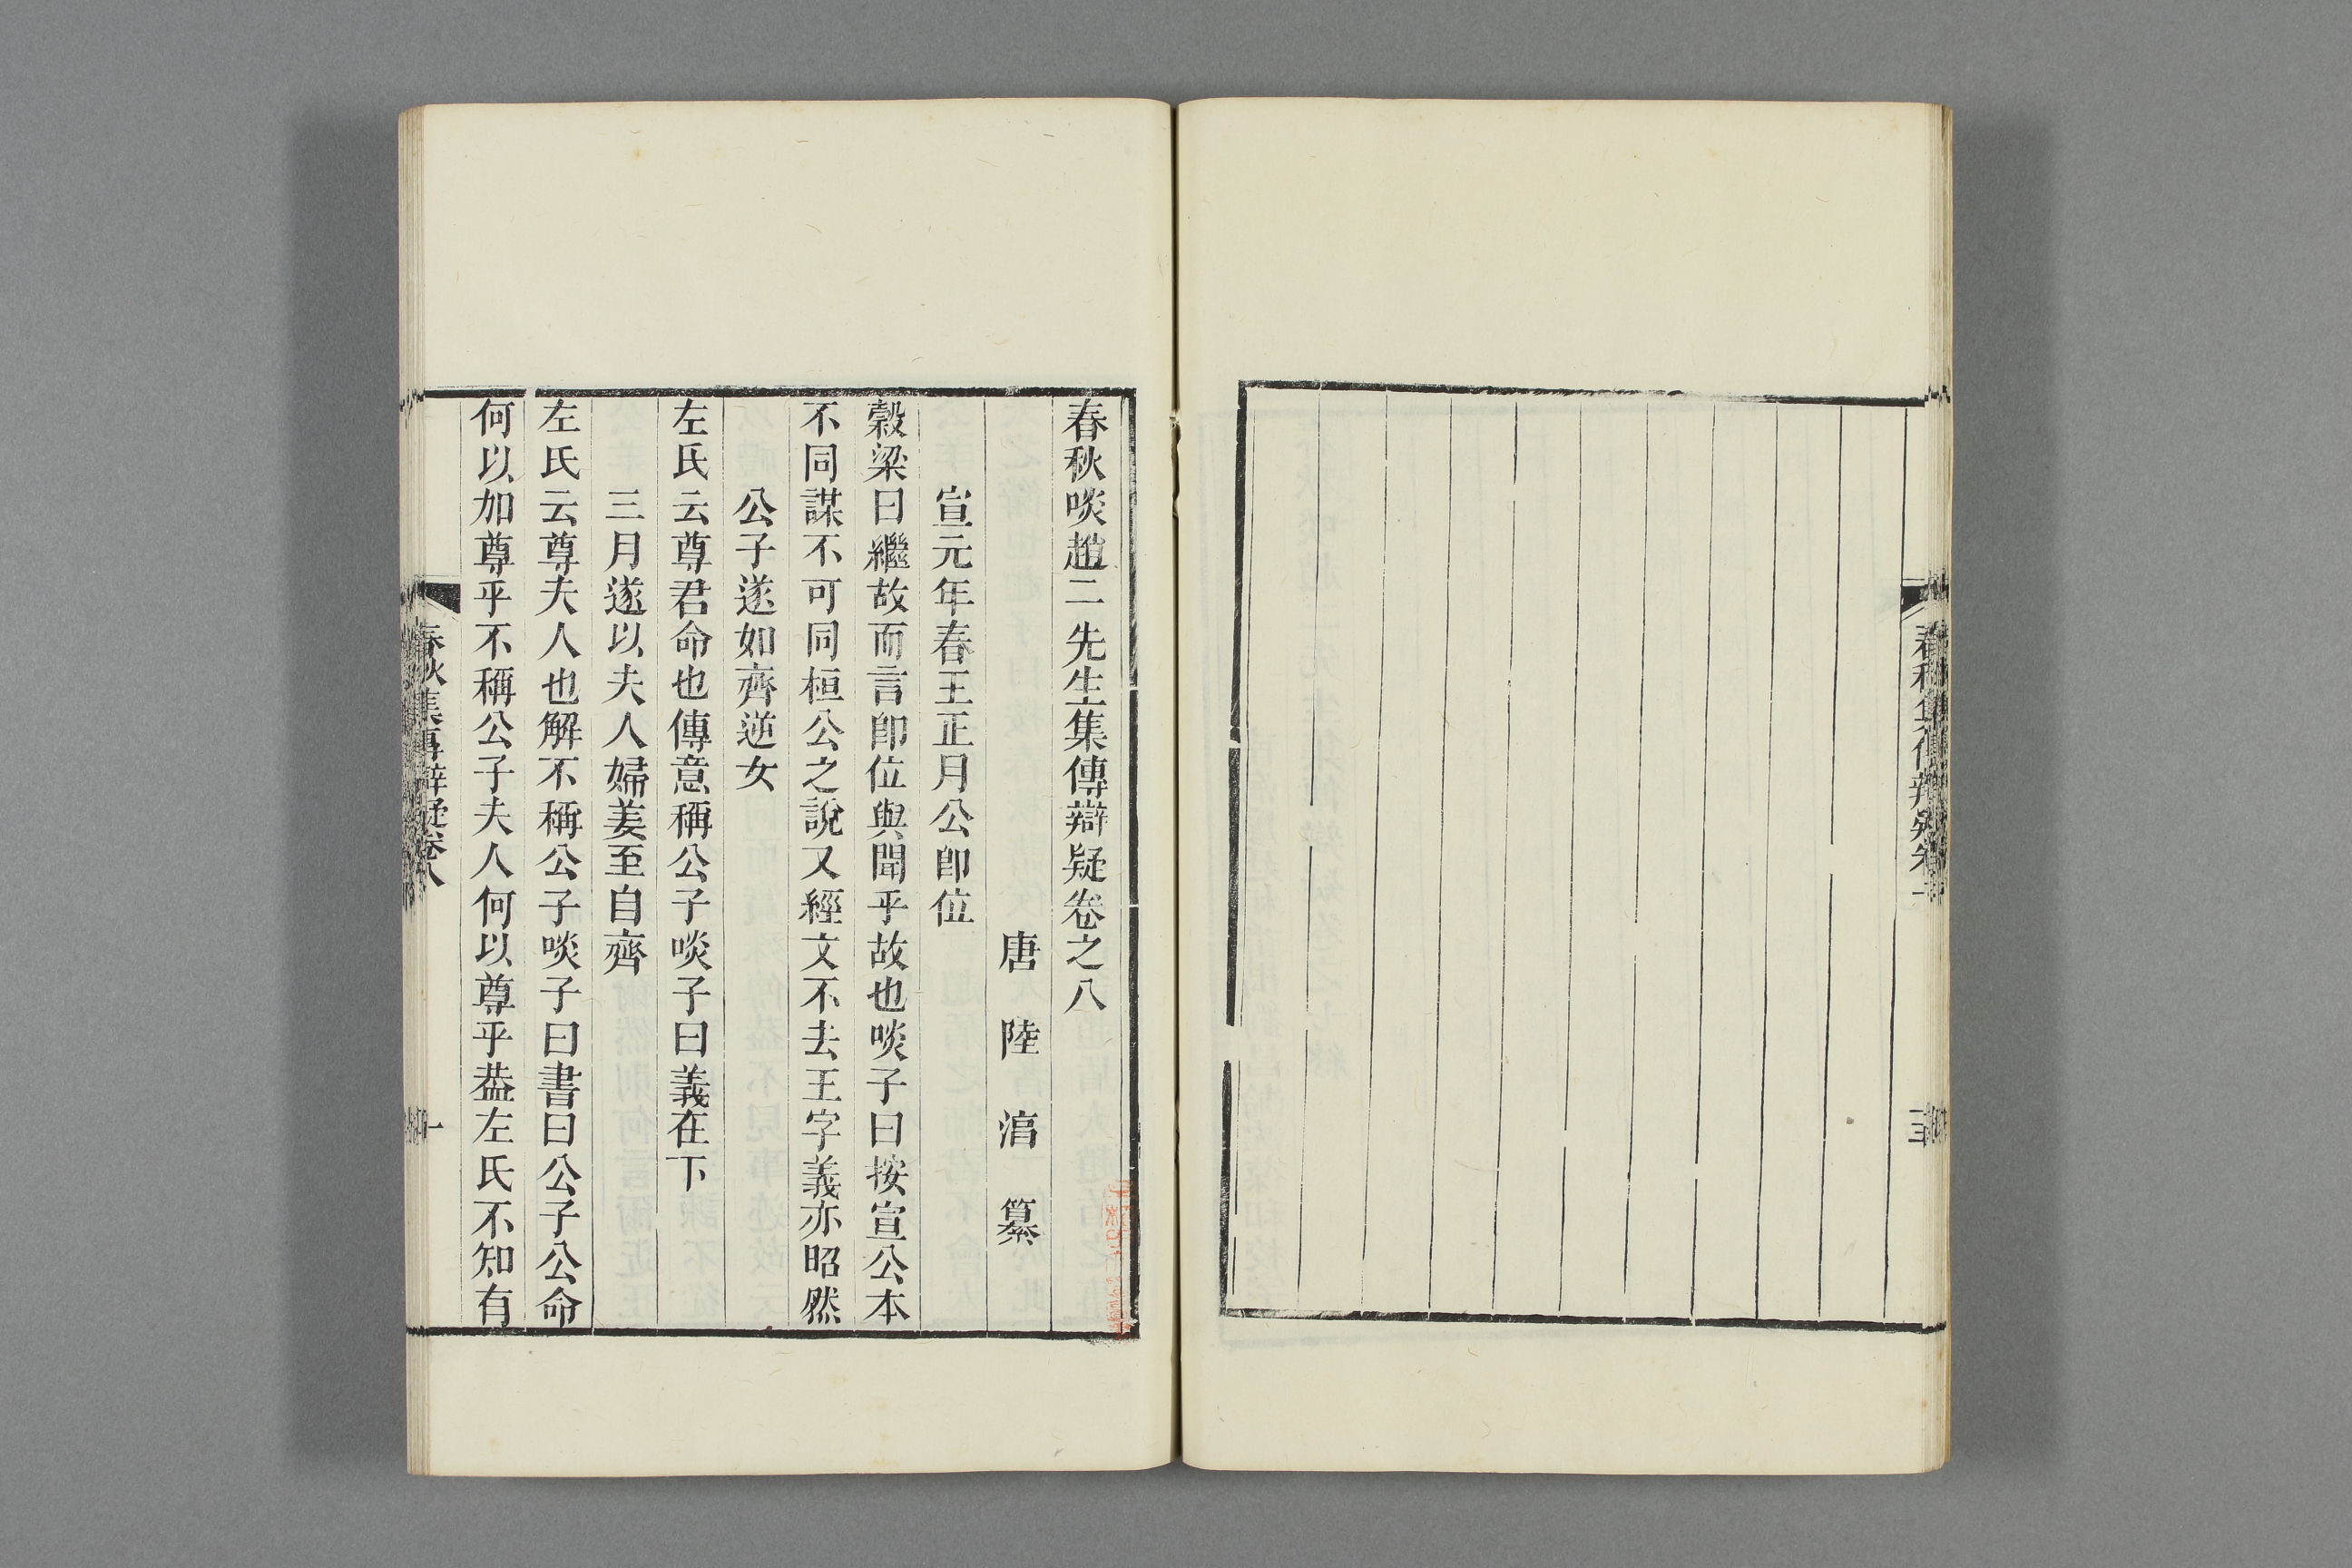 春秋啖趙二先生集傳辯疑卷之八
唐 陸 淳 纂
宣元年春王正月公卽位
穀梁曰繼故而言卽位與聞乎故也啖子曰按宣公本
不同謀不可同桓公之說又經文不去王字義亦昭然
公子遂如齊逆女
左氏云尊君命也傳意稱公子啖子曰義在下
三月遂以夫人婦姜至自齊
左氏云尊夫人也解不稱公子啖子曰書曰公子公命
何以加尊乎不稱公子夫人何以尊乎葢左氏不知有
春秋集傳辯疑卷八
一